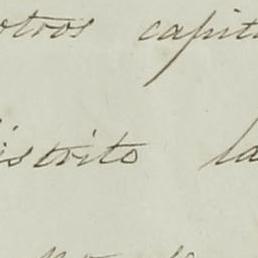 otros capit
istrito la